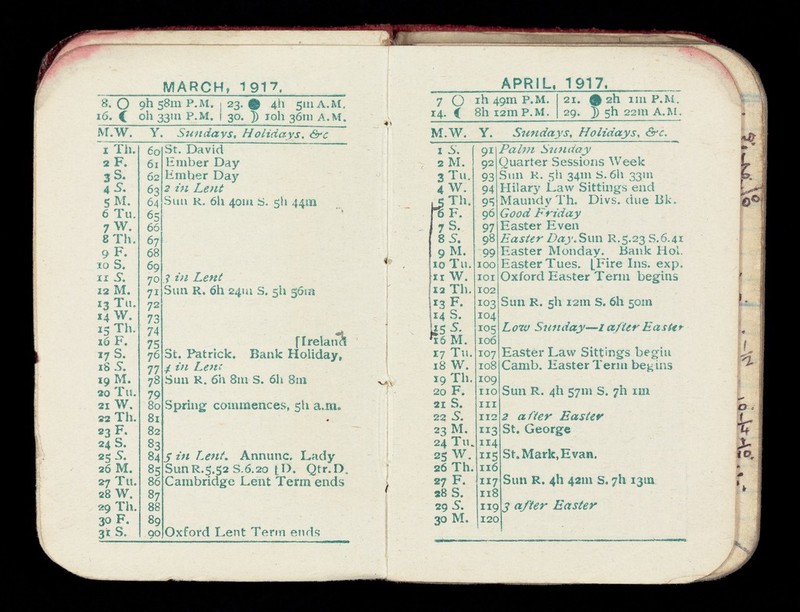 MARCH, 1917.
8. ○ 9h 58m P.M. | 23. ● 4h 5m A.M.
16. ☾ 0h 33m P.M. | 30. ☽ 10h 36m A.M.
M.W. Y. Sundays, Holidays, &c
1 Th. 60 St. David
2 F. 61 Ember Day
3 S. 62 Ember Day
4 S. 63 2 in Lent
5 M. 64 Sun R. 6h 40m S. 5h 44m
6 Tu. 65
7 W. 66
8 Th. 67
9 F. 68
10 S. 69
11 S. 70 3 in Lent
12 M. 71 Sun R. 6h 24m S. 5h 56m
13 Tu. 72
14 W. 73
15 Th. 74
16 F. 75 [Ireland
17 S. 76 St. Patrick. Bank Holiday,
18 S. 77 4 in Lent
19 M. 78 Sun R. 6h 8m S. 6h 8m
20 Tu. 79
21 W. 80 Spring commences, 5h a.m.
22 Th. 81
23 F. 82
24 S. 83
25 S. 84 5 in Lent. Annunc. Lady
26 M. 85 Sun R.5.52 S.6.20 [D. Qtr.D.
27 Tu. 86 Cambridge Lent Term ends
28 W. 87
29 Th. 88
30 F. 89
31 S. 90 Oxford Lent Term ends
APRIL, 1917.
7 ○ 1h 49m P.M. | 21. ● 2h 1m P.M.
14. ☾ 8h 12m P.M. | 29. ☽ 5h 22m A.M.
M.W. Y. Sundays, Holidays, &c.
1 S. 91 Palm Sunday
2 M. 92 Quarter Sessions Week
3 Tu. 93 Sun R. 5h 34m S. 6h 33m
4 W. 94 Hilary Law Sittings end
5 Th. 95 Maundy Th. Divs. due Bk.
6 F. 96 Good Friday
7 S. 97 Easter Even
8 S. 98 Easter Day. Sun R.5.23 S.6.41
9 M. 99 Easter Monday. Bank Hol.
10 Tu. 100 Easter Tues. [Fire Ins. exp.
11 W. 101 Oxford Easter Term begins
12 Th. 102
13 F. 103 Sun R. 5h 12m S. 6h 50m
14 S. 104
15 S. 105 Low Sunday—1 after Easter
16 M. 106
17 Tu. 107 Easter Law Sittings begin
18 W. 108 Camb. Easter Term begins
19 Th. 109
20 F. 110 Sun R. 4h 57m S. 7h 1m
21 S. 111
22 S. 112 2 after Easter
23 M. 113 St. George
24 Tu. 114
25 W. 115 St. Mark, Evan.
26 Th. 116
27 F. 117 Sun R. 4h 42m S. 7h 13m
28 S. 118
29 S. 119 3 after Easter
30 M. 120